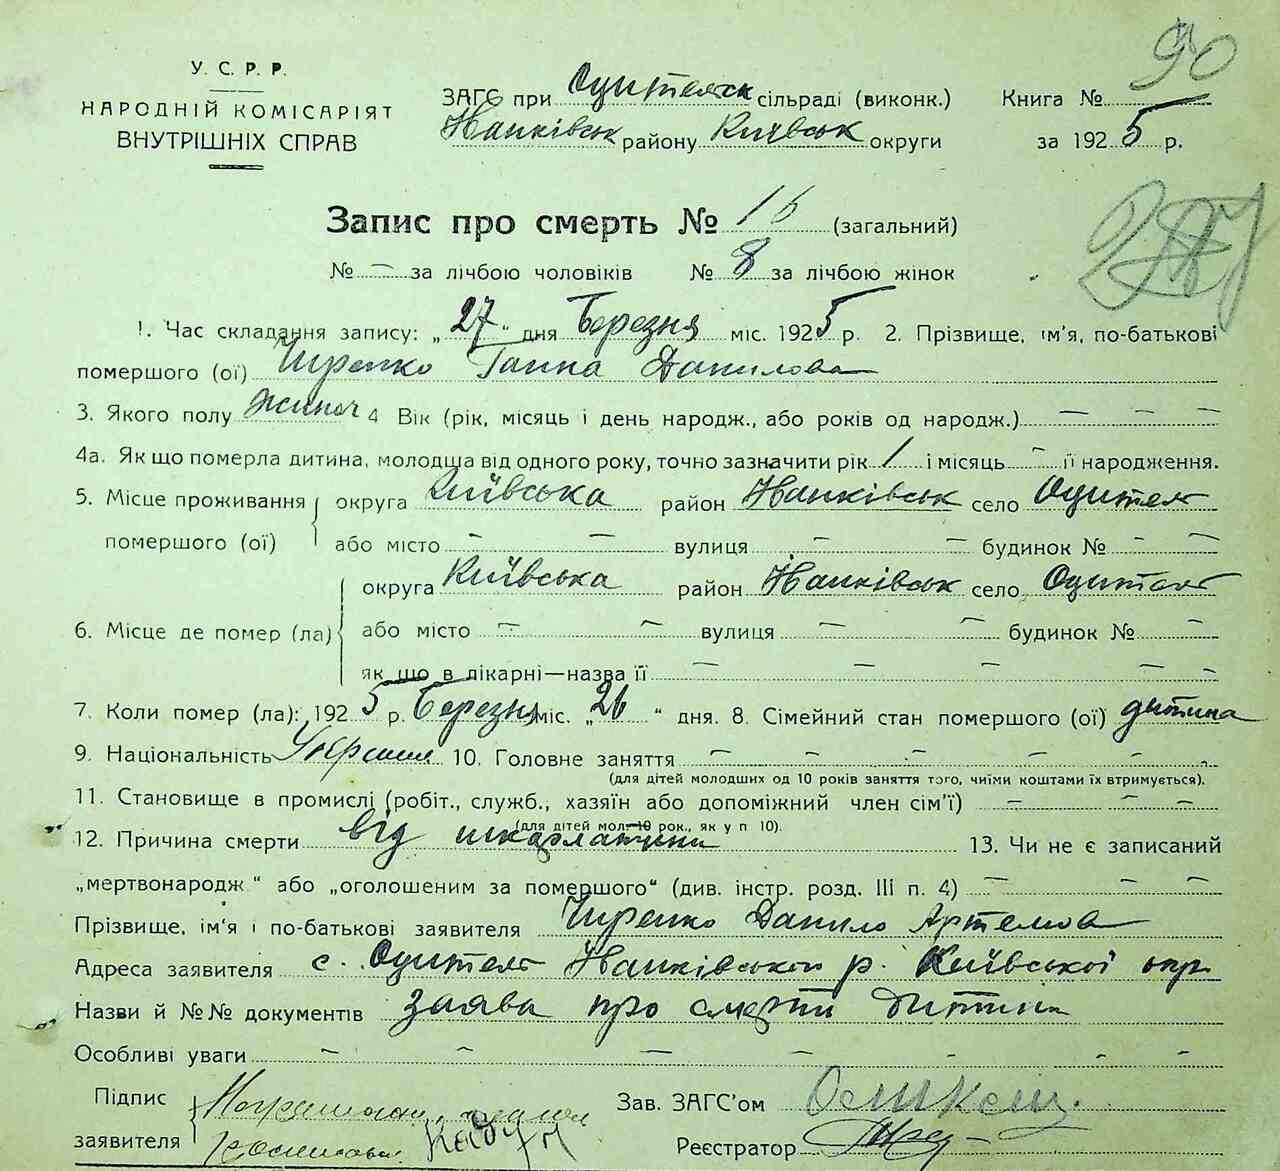 У. С. Р. Р.
НАРОДНІЙ КОМІСАРІЯТ
ВНУТРІШНІХ СПРАВ
ЗАГС при Одитвськ сільраді (виконк.)
Іванківськ району Київськ округи
Книга №
90
за 1925 р.
Запис про смерть № 16 (загальний)
№ — за лічбою чоловіків № 8 за лічбою жінок
1. Час складання запису: „27“ дня Березня міс. 1925 р. 2. Прізвище, ім'я, по-батькові
помершого (ої) Ганна Данилова
3. Якого полу жиноч 4 Вік (рік, місяць і день народж., або років од народж.) — — —
4а. Як що померла дитина, молодща від одного року, точно зазначити рік 1 і місяць — її народження.
5. Місце проживання помершого (ої) округа Київська район Іванківськ село
або місто — — вулиця — — будинок № — —
6. Місце де помер (ла) округа Київська район Іванківськ село
або місто — — вулиця — — будинок № — —
як що в лікарні—назва її — — — — —
7. Коли помер (ла): 1925 р. Березня міс. „26“ дня. 8. Сімейний стан помершого (ої) дитина
9. Національність 10. Головне заняття — — — — — —
(для дітей молодших од 10 років заняття того, чиїми коштами їх втримується).
11. Становище в промислі (робіт., служб., хазяїн або допоміжний член сім'ї) — — —
(для дітей мол. 10 рок., як у п 10).
12. Причина смерти від шкарлатини 13. Чи не є записаний
„мертвонародж “ або „оголошеним за помершого“ (див. інстр. розд. III п. 4) — — —
Прізвище, ім'я і по-батькові заявителя Данило Артемов
Адреса заявителя с. Іванківської р. Київської окр
Назви й №№ документів заява про смерть дитини
Особливі уваги — — — — — —
Підпис заявителя
Зав. ЗАГС'ом
Реєстратор